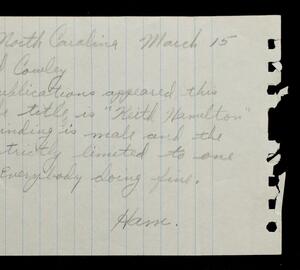 North Carolina March 15
Cowley
ublications appeared this
e title is "Keith Hamilton"
inding is male and the
trictly limited to one
Everybody doing fine.
Ham.